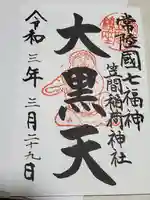 常陸國七福神
笠間稲荷神社
大黒天
令和三年三月二十九日